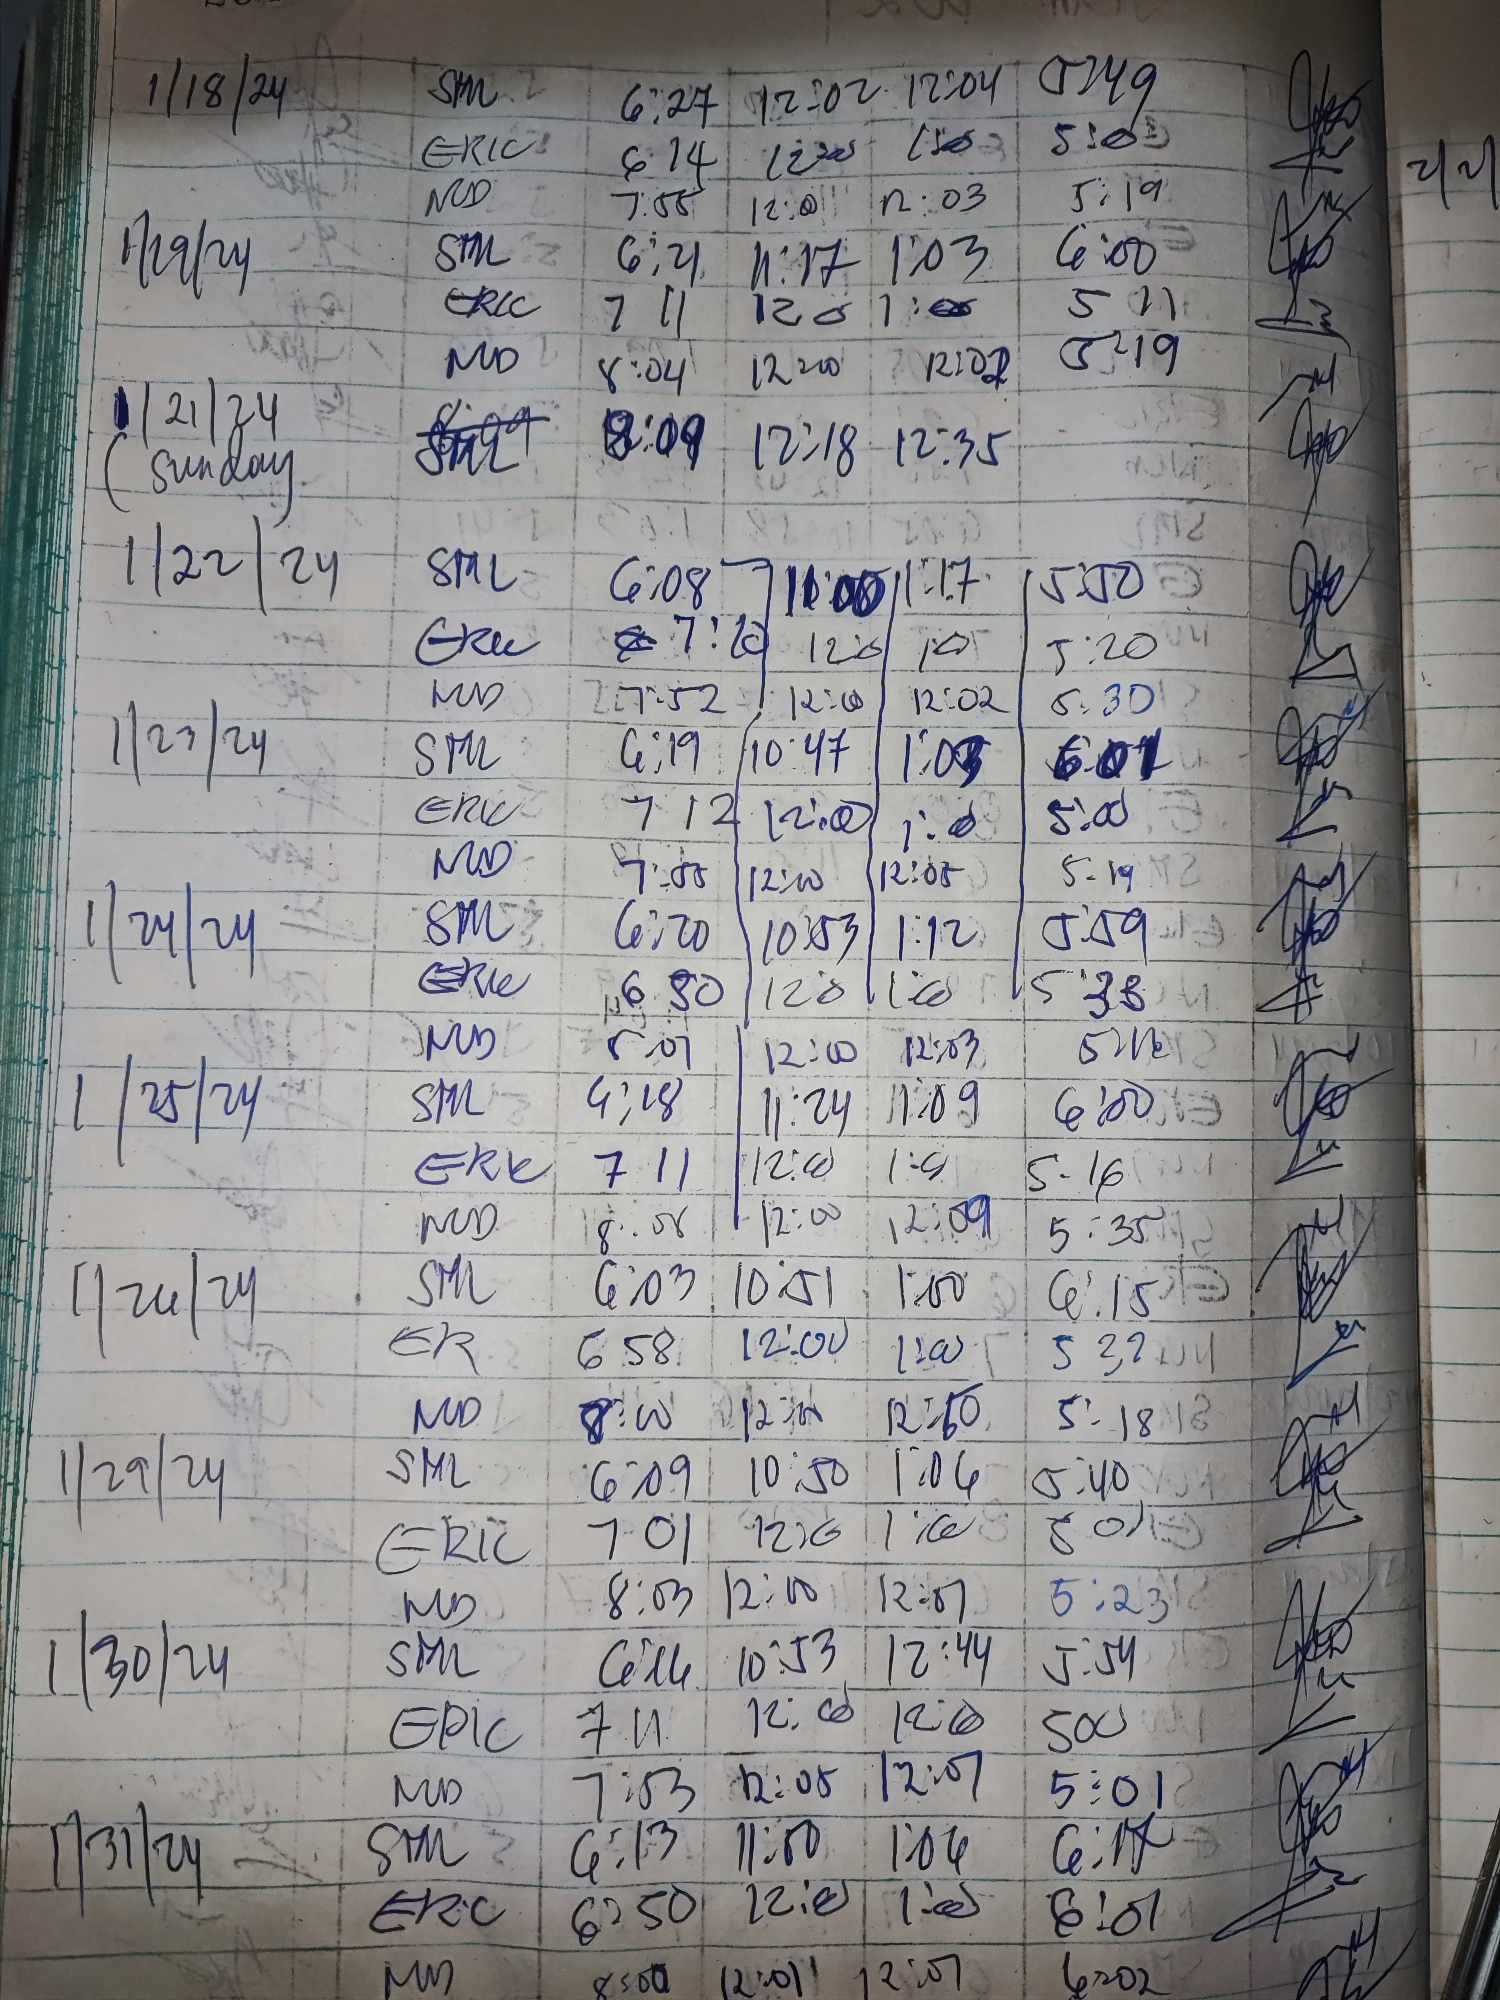 1/18/24 SML 6:27 12:02 12:04 5:49
ERIC 6 14 12:00 1:00 5:00
MD 7:55 12:00 12:03 5:19
1/29/24 SML 6:21 11:17 1:03 6:00
ERIC 7 11 12:0 1:00 5 11
MD 8:04 12:00 12:02 5:19
1/21/24 SML 8:09 12:18 12:35
(Sunday
1/22/24 SML 6:08 11:00 1:17 5:50
ERIC 7:20 12:0 1:0 5:20
MD 7:52 12:00 12:02 5:30
1/23/24 SML 6:19 10:47 1:03 6:01
ERIC 7 12 12:00 1:0 5:00
MD 7:55 12:00 12:05 5-19
1/24/24 SML 6:20 10:53 1:12 5:59
ERIC 6 50 12:0 1:00 5:33
MD 8:01 12:00 12:03
1/25/24 SML 6:18 11:24 1:09 6:00
ERIC 7 11 12:00 1:0 5-16
MD 8:08 12:00 12:09 5:35
1/26/24 SML 6:03 10:51 1:00 6:15
ER 6 58 12:00 1:00 5 32
MD 8:00 12:00 12:10 5:18
1/29/24 SML 6:09 10:50 1:06 5:40
ERIC 7 01 12:0 1:00 5 01
MD 8:03 12:00 12:01 5:23
1/30/24 SML 6:16 10:53 12:44 5:54
ERIC 7 11 12:00 12:00 500
MD 7:53 12:05 12:07 5:01
1/31/24 SML 6:13 11:00 1:06 6:17
ERIC 6:50 12:00 1:00 6:01
MD 8:00 12:01 12:07 6:02